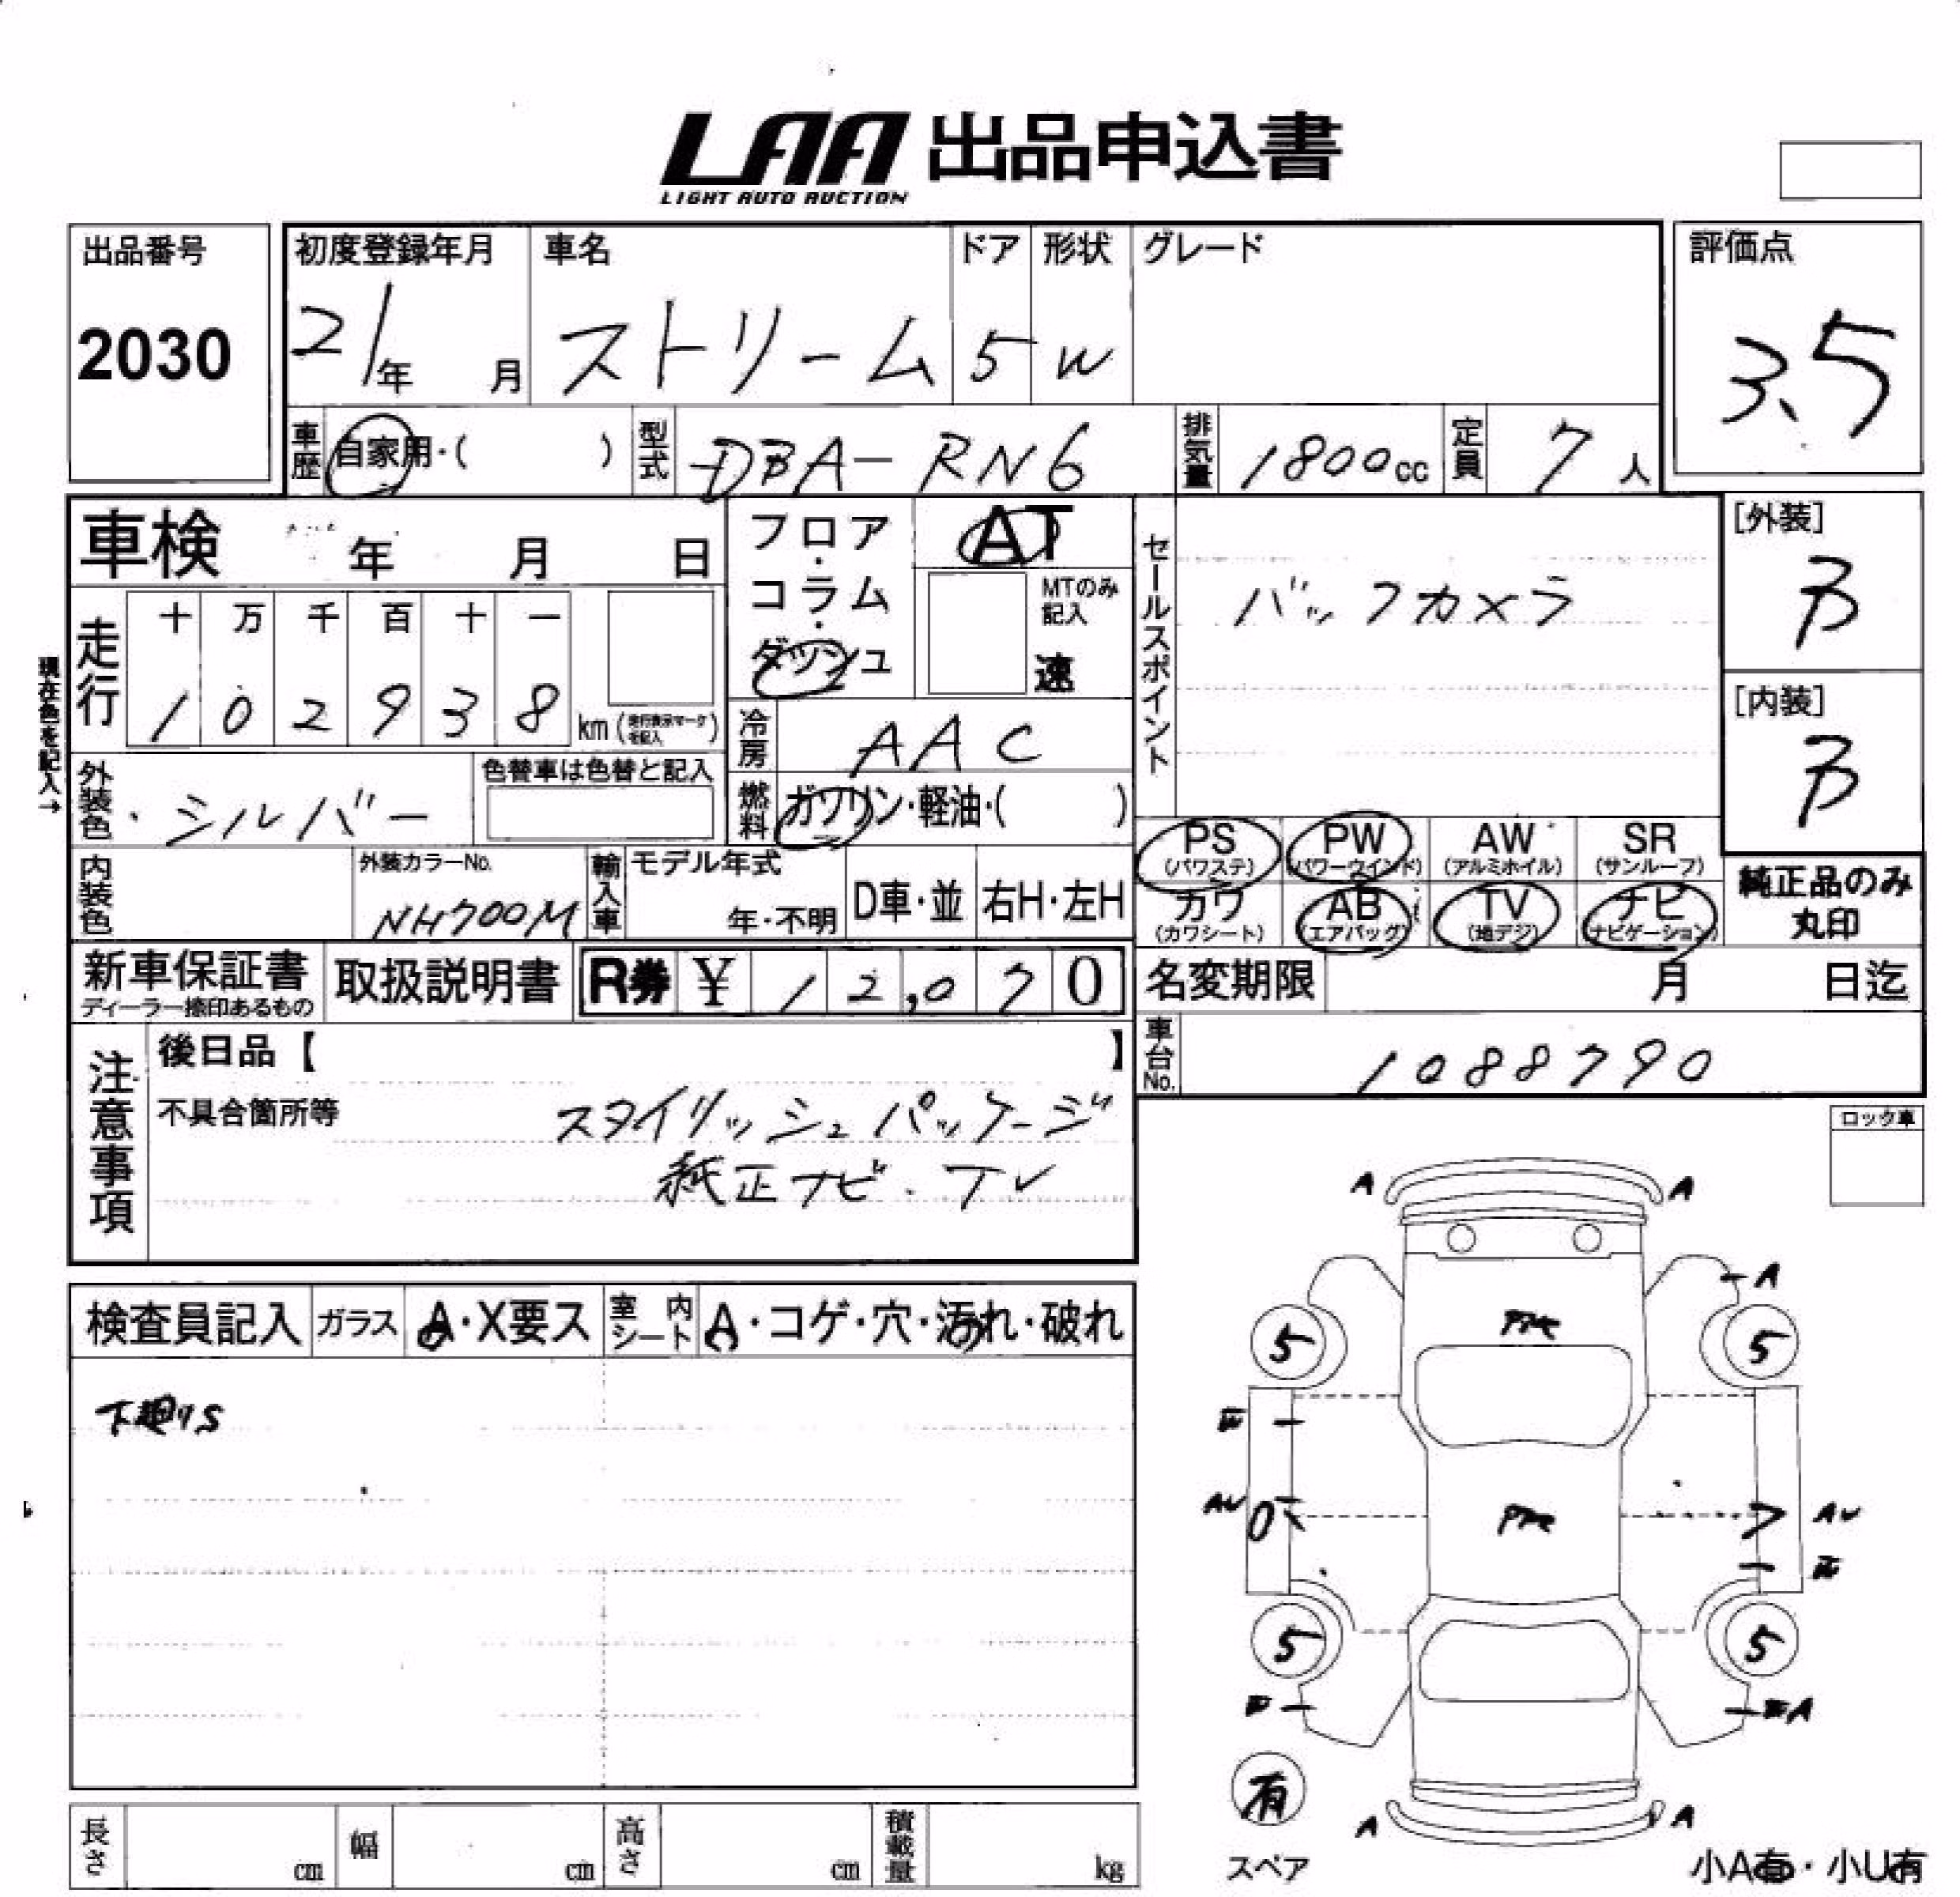 LAA 出品申込書
LIGHT AUTO AUCTION
出品番号
2030
初度登録年月
21年 月
車名
ストリーム
ドア
5
形状
W
グレード
評価点
3.5
車歴 自家用・( )
型式 DBA-RN6
排気量 1800cc
定員 7人
車検 年 月 日
フロア・コラム・ダッシュ
AT
MTのみ記入
速
セールスポイント
バックカメラ
[外装]
B
[内装]
B
現在色を記入→
走行 十 万 千 百 十 一
1 0 2 9 3 8 km (走行表示マークを記入)
冷房 AAC
外装色 ・シルバー
色替車は色替と記入
燃料 ガソリン・軽油・( )
内装色
外装カラーNo.
NH700M
輸入車 モデル年式
年・不明
D車・並 右H・左H
PS (パワステ)
PW (パワーウインド)
AW (アルミホイル)
SR (サンルーフ)
カワ (カワシート)
AB (エアバッグ)
TV (地デジ)
ナビ (ナビゲーション)
純正品のみ
丸印
新車保証書
ディーラー捺印あるもの
取扱説明書
R券 ¥ 12,070
名変期限 月 日迄
車台No. 1088790
注意事項
後日品【 】
不具合箇所等
スタイリッシュパッケージ
純正ナビ・TV
ロック車
検査員記入 ガラス A・X要ス 室内シート A・コゲ・穴・汚れ・破れ
下廻りS
A A
A
5 5
AU AU
5 5
A
有
スペア
A A
小A有・小U有
長さ cm 幅 cm 高さ cm 積載量 kg